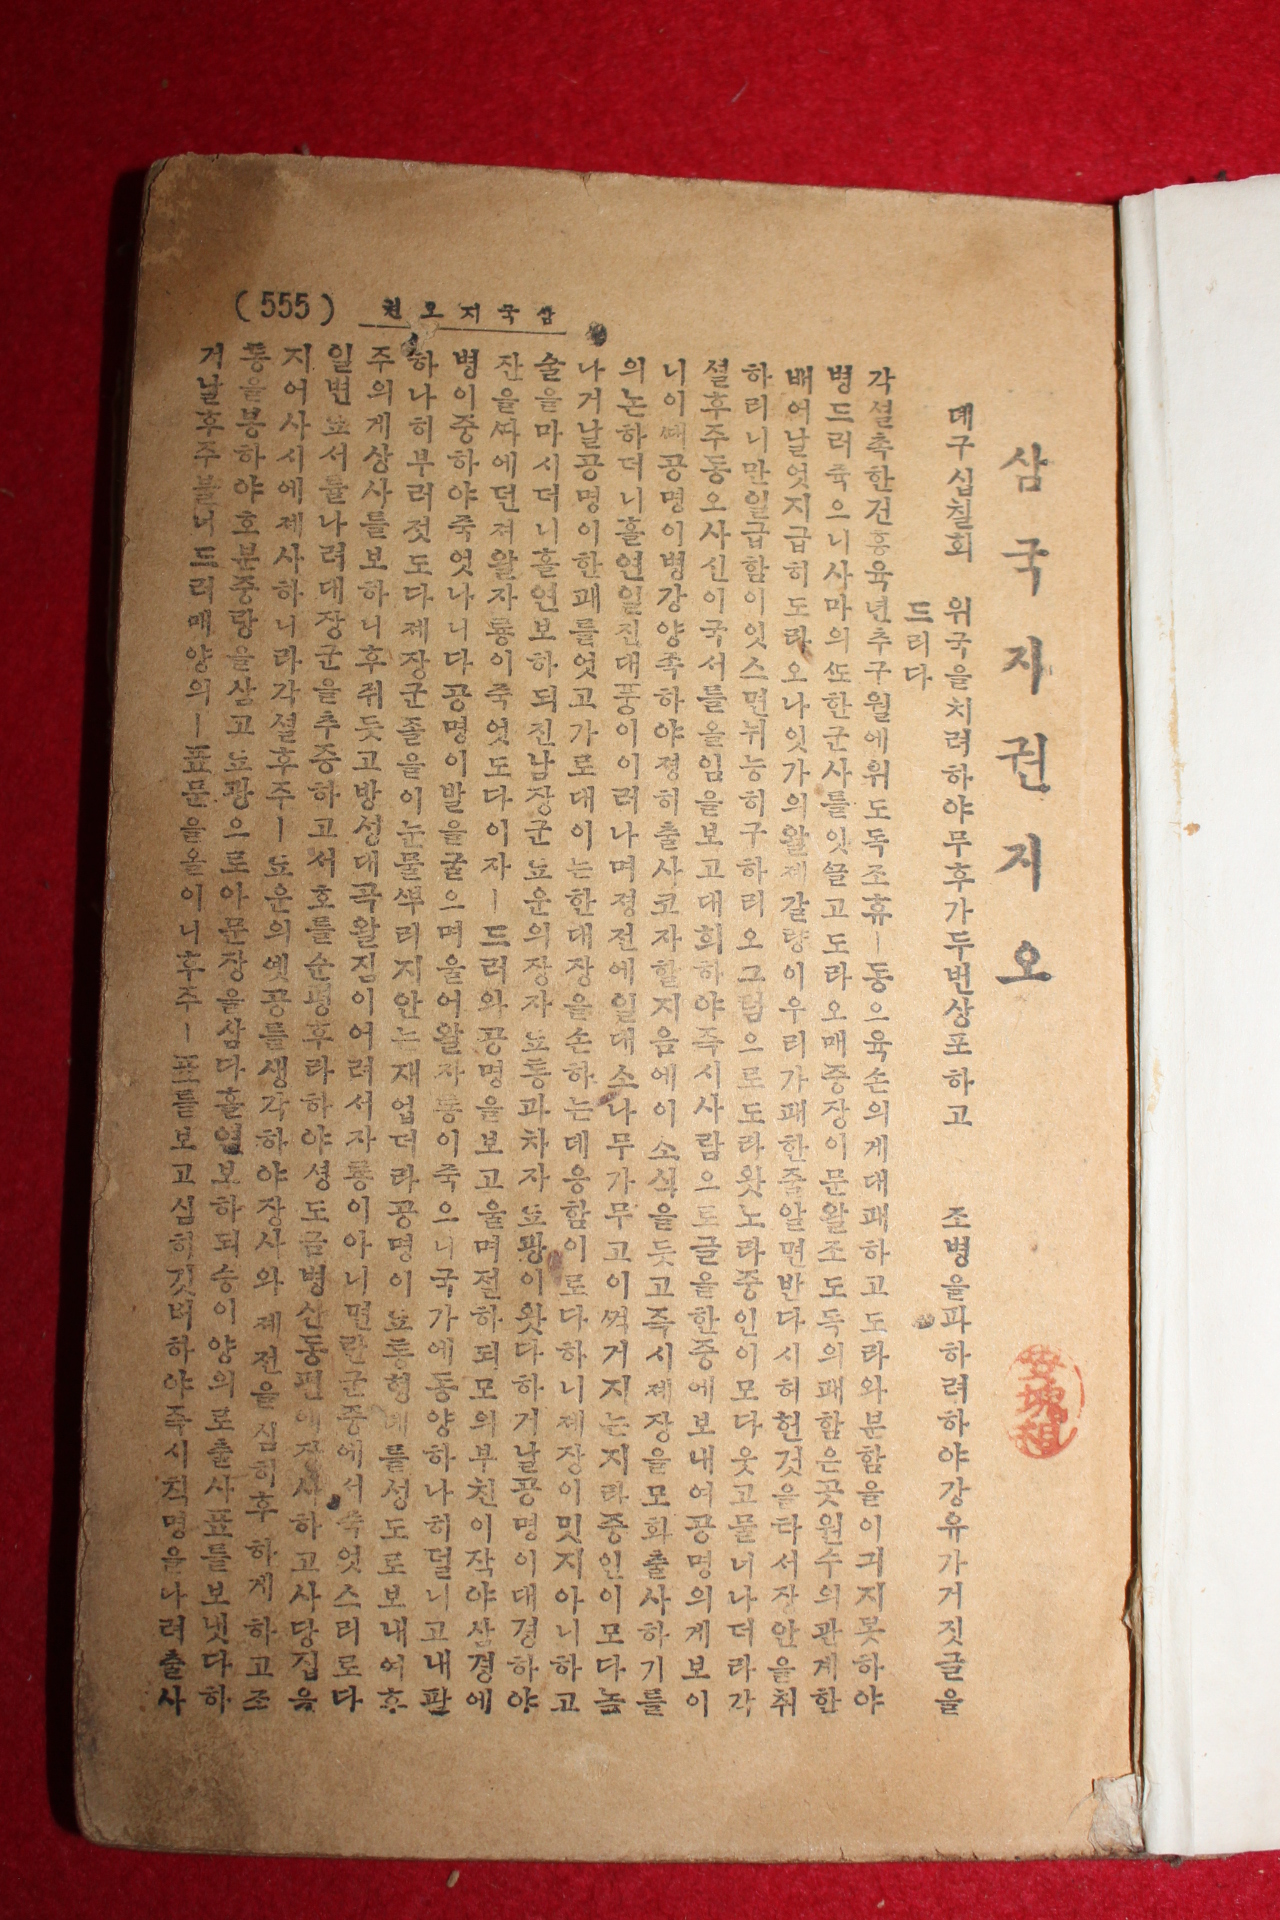 삼국지권지오
뎨구십칠회 위국을치려하야무후가두번상표하고 조병을파하려하야강유가거짓글을
드리다
각셜촉한건흥육년추구월에위도독조휴ㅣ동으육손의게대패하고도라와분함을이긔지못하야
병드러죽으니사마의또한군사를잇끌고도라오매즁장이문왈조도독의패함은곳원수의관계한
배어날엇지급히도라오나잇가의왈제갈량이우리가패한줄알면반다시허현것을타서장안을취
하리니만일급함이잇스면뉘능히구하리오그럼으로도라왓노라즁인이모다웃고물너나더라각
셜후주동오사신이국서를올임을보고대희하야즉시사람으로글을한중에보내여공명의게보이
니이때공명이병강양족하야졍히출사코자할지음에이소식을듯고즉시졔장을모화출사하기를
의논하더니홀연일진대풍이이러나며졍전에일대소나무가무고이꺽거지는지라즁인이모다놀
나거날공명이한괘를엇고가로대이는한대장을손하는데응함이로다하니졔장이밋지아니하고
술을마시더니홀연보하되진남장군됴운의장자됴통과차자됴광이왓다하거날공명이대경하야
잔을따에던져왈자룡이죽엇도다이자ㅣ드러와공명을보고울며전하되모의부친이작야삼경에
병이중하야죽엇나니다공명이발을굴으며울어왈자룡이죽으니국가에동양하나히덜니고내팔
하나히부러젓도다졔장군졸을이눈물뿌리지안는재업더라공명이됴통형뎨를성도로보내여후
주의게상사를보하니후쥐듯고방셩대곡왈짐이어려서자룡이아니면란군중에서죽엇스리로다
일변됴서를나려대장군을추증하고서호를순평후라하야셩도금병산동편에장사하고사당집을
지어사시에졔사하니라각셜후주ㅣ됴운의옛공를생각하야장사와졔전을심히후하게하고조
통을봉하야호분즁랑을삼고됴광으로아문장을삼다홀연보하되승이양의로출사표를보냇다하
거날후주불너드리매양의ㅣ표문을올이니후주ㅣ표를보고심히깃버하야즉시칙명을나려출사
삼국지오권 (555)